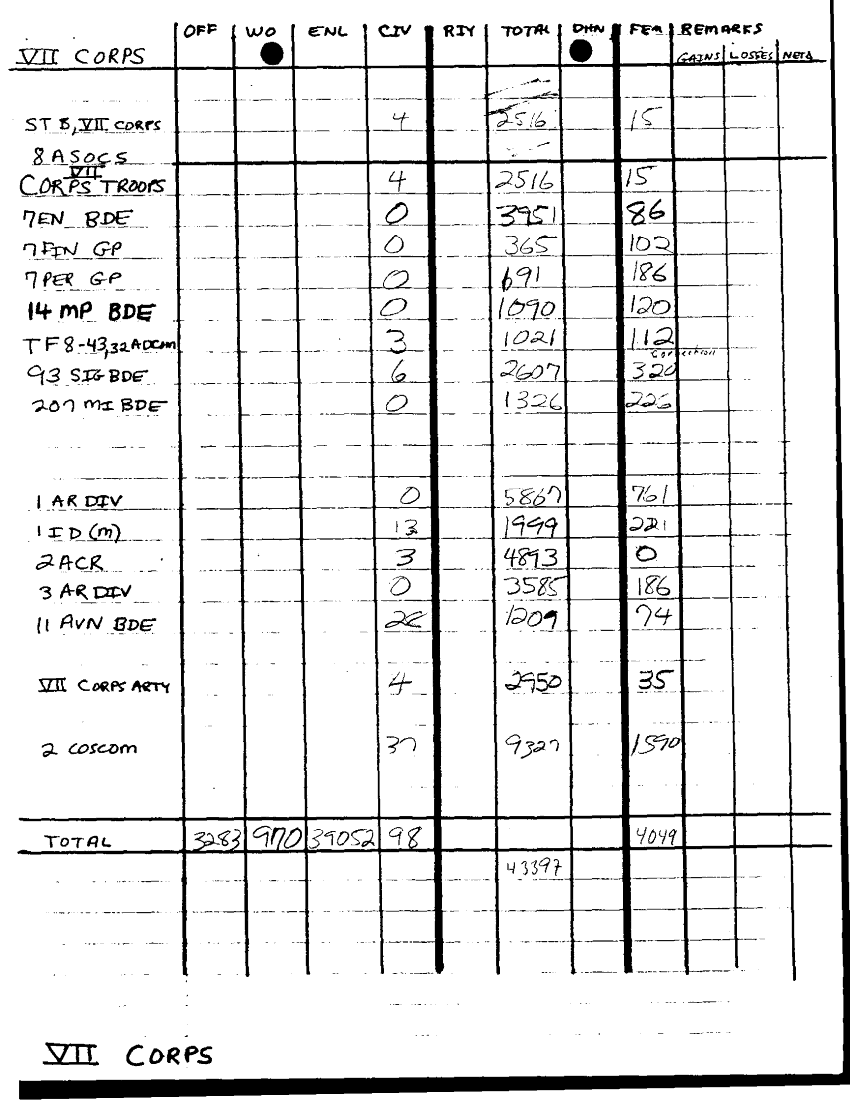 OFF WO ENL CIV RIY TOTAL DHN FEM REMARKS
VII CORPS GAINS LOSSES NET Δ
STB, VII CORPS 4 2516 15
8 ASOCS
VII
CORPS TROOPS 4 2516 15
7EN BDE 0 3951 86
7FIN GP 0 365 102
7PER GP 0 691 186
14 MP BDE 0 1090 120
TF8-43,32ADCOM 3 1021 112
correction
93 SIG BDE 6 2607 320
207 MI BDE 0 1326 226
1 AR DIV 0 5867 761
1 ID (m) 13 1999 221
2 ACR 3 4893 0
3 AR DIV 0 3585 186
11 AVN BDE 1209 74
VII CORPS ARTY 4 2950 35
2 COSCOM 37 9327 1590
TOTAL 3283 970 39052 98 4049
43397
VII CORPS